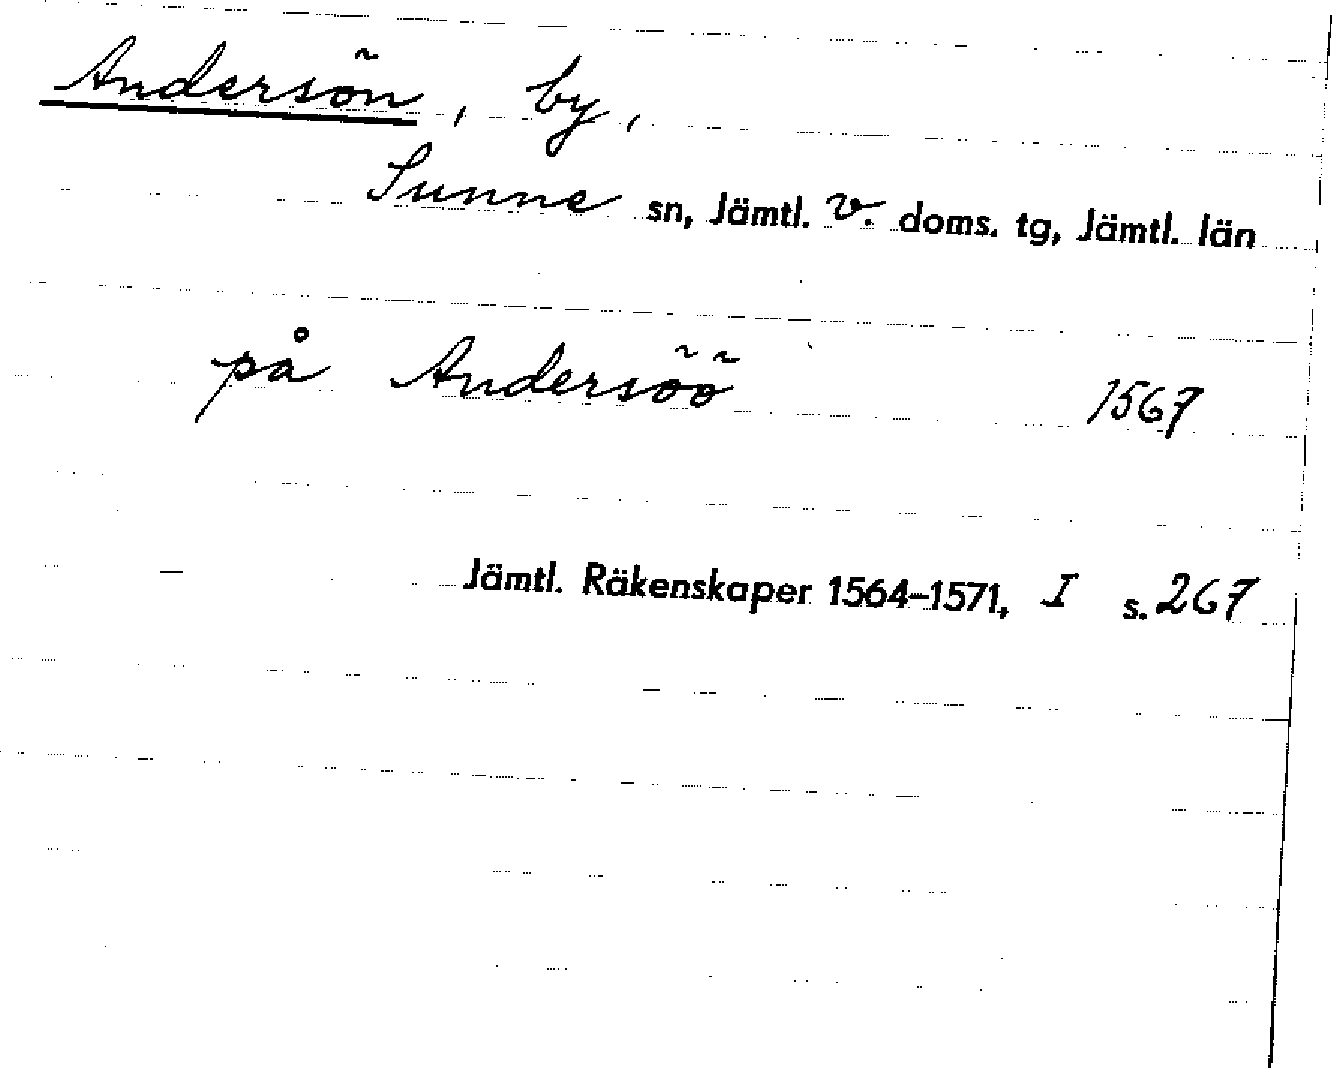 Andersön, by,
Sunne sn, Jämtl. v. doms. tg, Jämtl. län
på Andersöö 1567
Jämtl. Räkenskaper 1564-1571, I s. 267